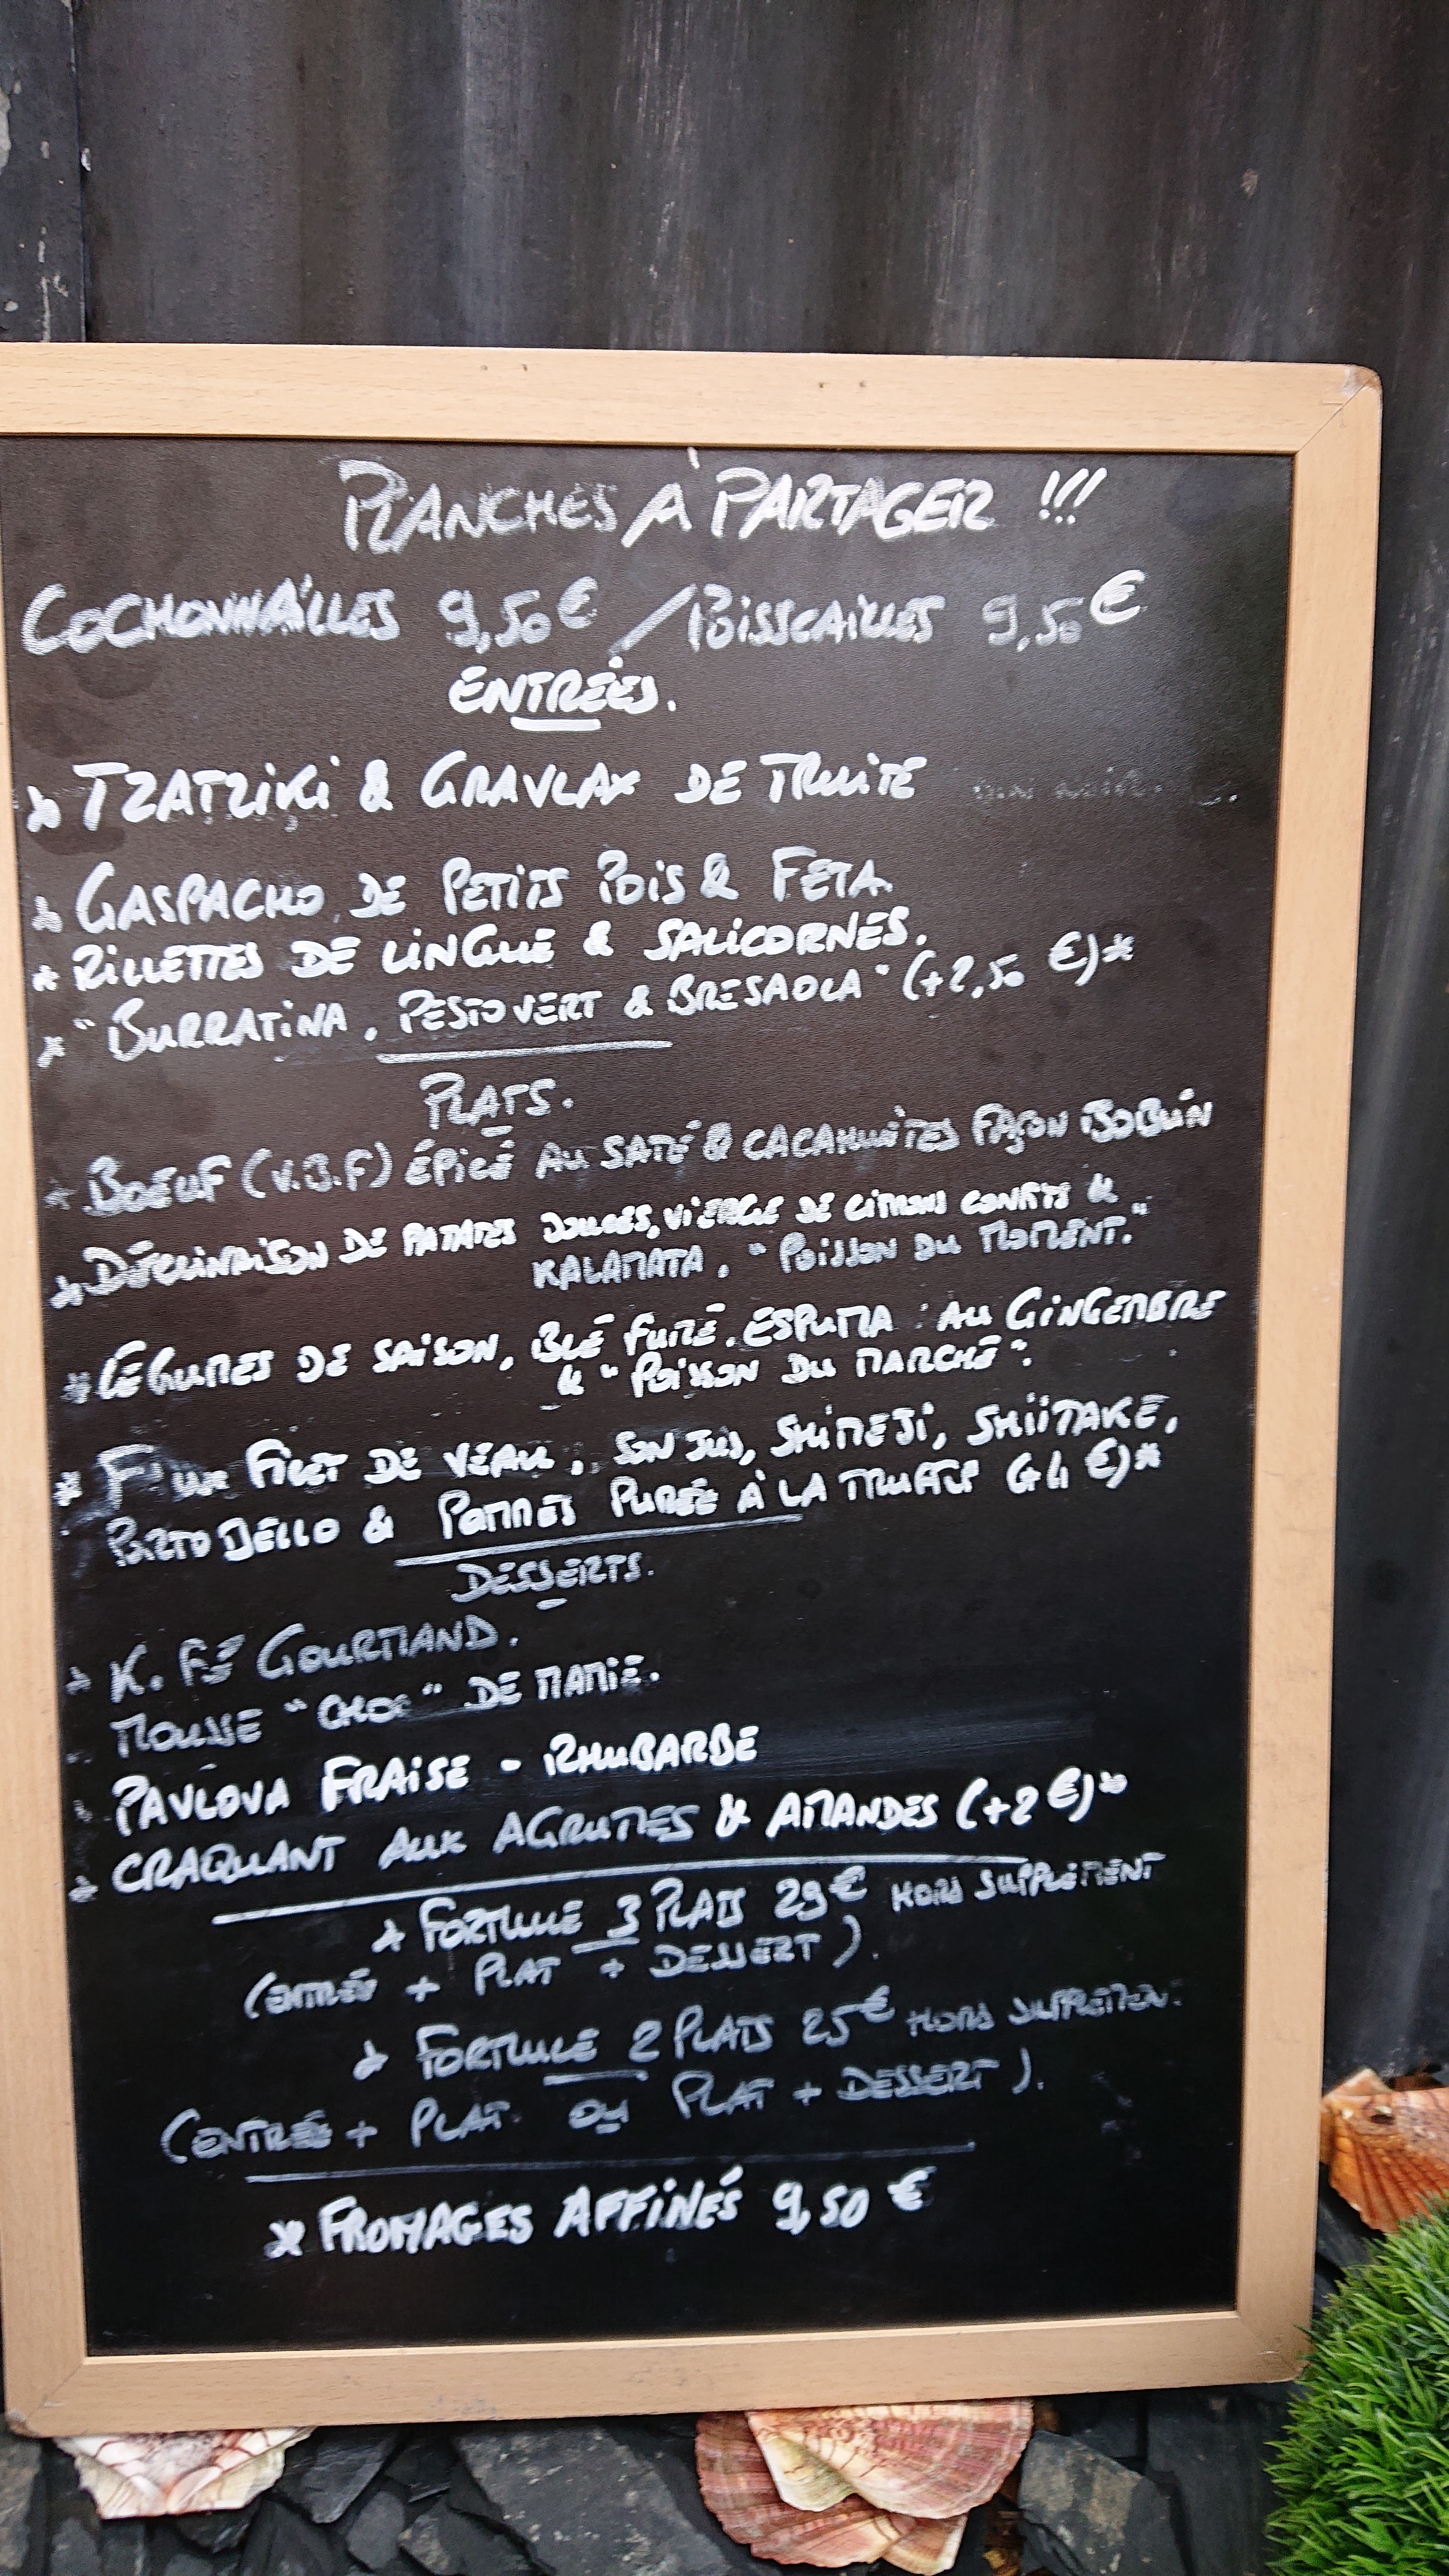 PLANCHES À PARTAGER !!!
COCHONNAILLES 9,50€ / POISSCAILLES 9,50€
ENTRÉES.
* TZATZIKI & GRAVLAX DE TRUITE
* GASPACHO DE PETITS POIS & FETA.
* RILLETTES DE LINGUE & SALICORNES.
* "BURRATINA, PESTO VERT & BRESAOLA" (+2,50 €)*
PLATS.
* BOEUF (V.B.F) ÉPICÉ AU SATÉ & CACAHUÈTES FAÇON BOBUN
* DÉCLINAISON DE PATATES DOUCES, VIERGE DE CITRONS CONFITS &
KALAMATA, "POISSON DU MOMENT."
* LÉGUMES DE SAISON, BLÉ FUMÉ, ESPUMA AU GINGEMBRE
& "POISSON DU MARCHÉ".
* FILET DE VEAU, SON JUS, SHIMEJI, SHIITAKE,
PORTOBELLO & POMMES PURÉE À LA TRUFFE (+4 €)*
DESSERTS.
* K.FÉ GOURMAND.
MOUSSE "CHOC" DE MAMIE.
PAVLOVA FRAISE - RHUBARBE
* CRAQUANT AUX AGRUMES & AMANDES (+2 €)*
* FORMULE 3 PLATS 29€ HORS SUPPLÉMENT
(ENTRÉE + PLAT + DESSERT).
* FORMULE 2 PLATS 25€ HORS SUPPLÉMENT
(ENTRÉE + PLAT OU PLAT + DESSERT).
* FROMAGES AFFINÉS 9,50 €